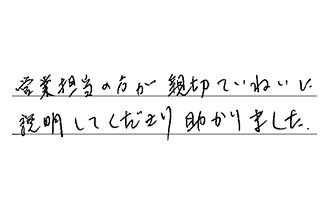 営業担当の方が親切ていねいに
説明してくださり助かりました.